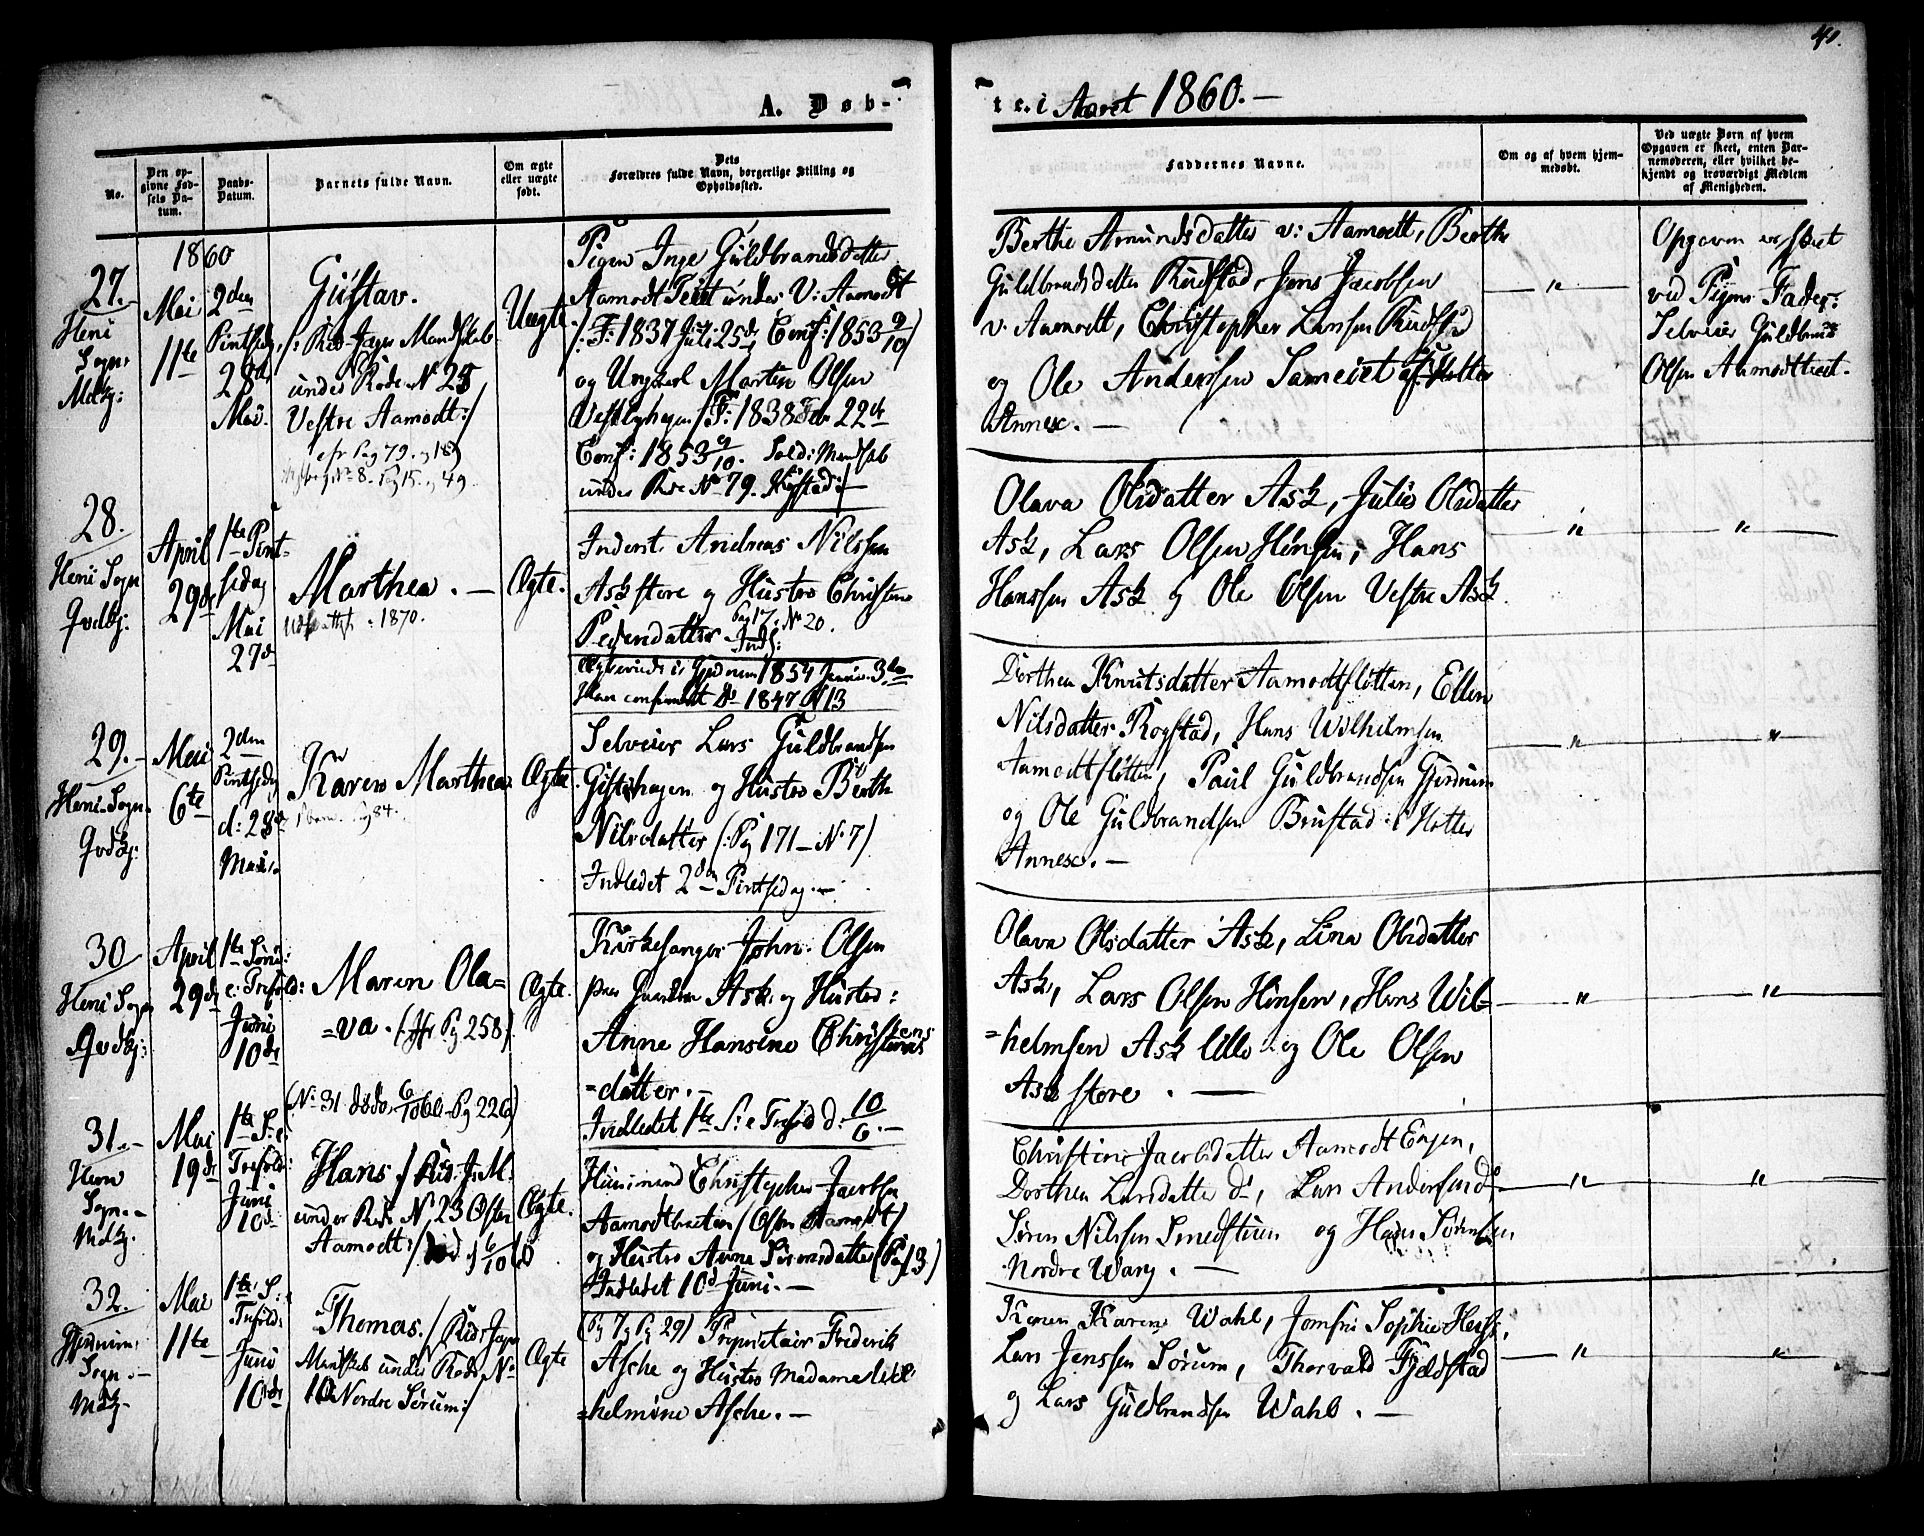 40.
A. Døb-
te i Aaret 1860.-
No.
Den op-
givne Fød-
sels Da-
tum.
Daabs-
Datum.
Barnets fulde Navn.
Om ægte
eller uægte
født.
Dets
Forældres fulde Navn, borgerlige Stilling og
Opholdssted.
Faddernes Navne.
Om og af hvem hjem-
medøbt.
Ved uægte Børn af hvem
Opgaven er skeet, enten Bar-
nemoderen, eller hvilket be-
kjendt og troværdigt Medlem
af Menigheden.
1860
27.-
Heni
Sogn.
Mdkj:
Mai
11te
2den
Pintsedag,
28d
Mai.
Güstav.
/: Red. Jæger Mandskab
under Rode N. 25
Vestre Aamodt:/
cfr Pag 79.
Uægte
Pigen Inge Güldbrandsdatter
Aamodt Teiet under V: Aamodt
/: F: 1837 Juli 25d Conf: 1853 9/10)
og Ungkarl Marten Olsen
/F: 1838 Feb 22de
Conf: 1853 9/10. Sold: Mandskab
under Rode No 79.
Berthe Amundsdatter v: Aamodt, Berthe
Güldbrandsdatter Rudstad, Jens Jacobsen
v. Aamodt, Christopher Larsen Rudstad
og Ole Andersen Sameiet af Holter
Annex. -
- " -
Opgaven er skeet
ved Pigens Fader:
Selveier Güldbrand
Olsen Aamodteiet.
28.
Heni Sogn
Qvdkj:
April
29de
1ste Pint-
sedag
Mai
27d
Marthea. -
1870.
Ægte.
Inderst Andreas Nilssen
Ask store og Hustro Christine
Pedersdatter Pag 17. No 20.
Inds:
Ægteviede i Gjerdrum 1854 3die
Han confirmert 1847 N 13
Olava Olsdatter Ask, Julie Olsdatter
Ask, Lars Olsen Hönsen, Hans
Hanssen Ask og Ole Olsen Vestre Ask.
- " -
- " -
29.-
Heni Sogn.
Qvdkj:
Mai
6te
2den
Pintsedag
d: 28de
Mai.
Karen Marthea
Ægte
Selveier Lars Güldbrandsen
og Hustro Berthe
Nilsdatter (: Pag 171 - No 7)
Indledet 2den Pintsedag. -
Dorthea Knutsdatter Aamodtsletten, Ellen
Nilsdatter Rogstad, Hans Wilhelmsen
Aamodtsletten, Paul Güldbrandsen Gjerdrum
og Ole Güldbrandsen Brustad i Holter
Annex. -
- " -
- " -
30
Heni Sogn
Qvdkj:
April
29de
1ste Sönd:
e: Trefold:
Juni
10de
Maren Ola=
=va. (: Jfr Pag 258)
Ægte.
Kirkesanger John Olsen
paa Ask og Hustro:
Anne Hansine Christens
=datter. -
Indledet 1ste S: e Trefold d: 10/6. -
Olava Olsdatter Ask, Lina Olsdatter
Ask, Lars Olsen Hönsen, Hans Wil=
=helmsen Ask lille og Ole Olsen
Ask store. -
- " -
- " -
(No 31 döde 6/10 60 - Pag 226)
31.-
Heni
Sogn.-
Mdkj.
Mai
19de
1ste S: e:
Trefold:
Juni
10d
Hans /: Red. J. M.
under Rode No 23 Östre
Aamodt:/ död 6/10 60
Ægte.
Huusmand Christopher Jacobsen
Aamodtbraaten (Östre Aamodt)
og Hustro Anne Simensdatter (Pag 13)
Indledet 10d Juni. -
Christine Jacobsdatter Aamodt Engen,
Dorthea Larsdatter do, Lars Andersen do
Sören Nilssen Smedstuen og Hans Sörensen
Nordre Warg. -
- " -
- " -
32.
Gjerdrum
Sogn.-
Mdkj-
Mai
11te
1ste S:
Trefold:
Juni
10de
Thomas. /: Red: Jæger
Mandskab under Rode No
10 Nordre Sörum:/
Ægte
(Pag 7 Pag 29) Proprietair Frederik
Asche og Hustro Madame Wil
=helmine Asche. -
Karen Wahl, Jomfru Sophie
Lars Jenssen Sörum, Thorvald Fjeldstad
og Lars Güldbrandsen Wahl. -
- " -
- " -